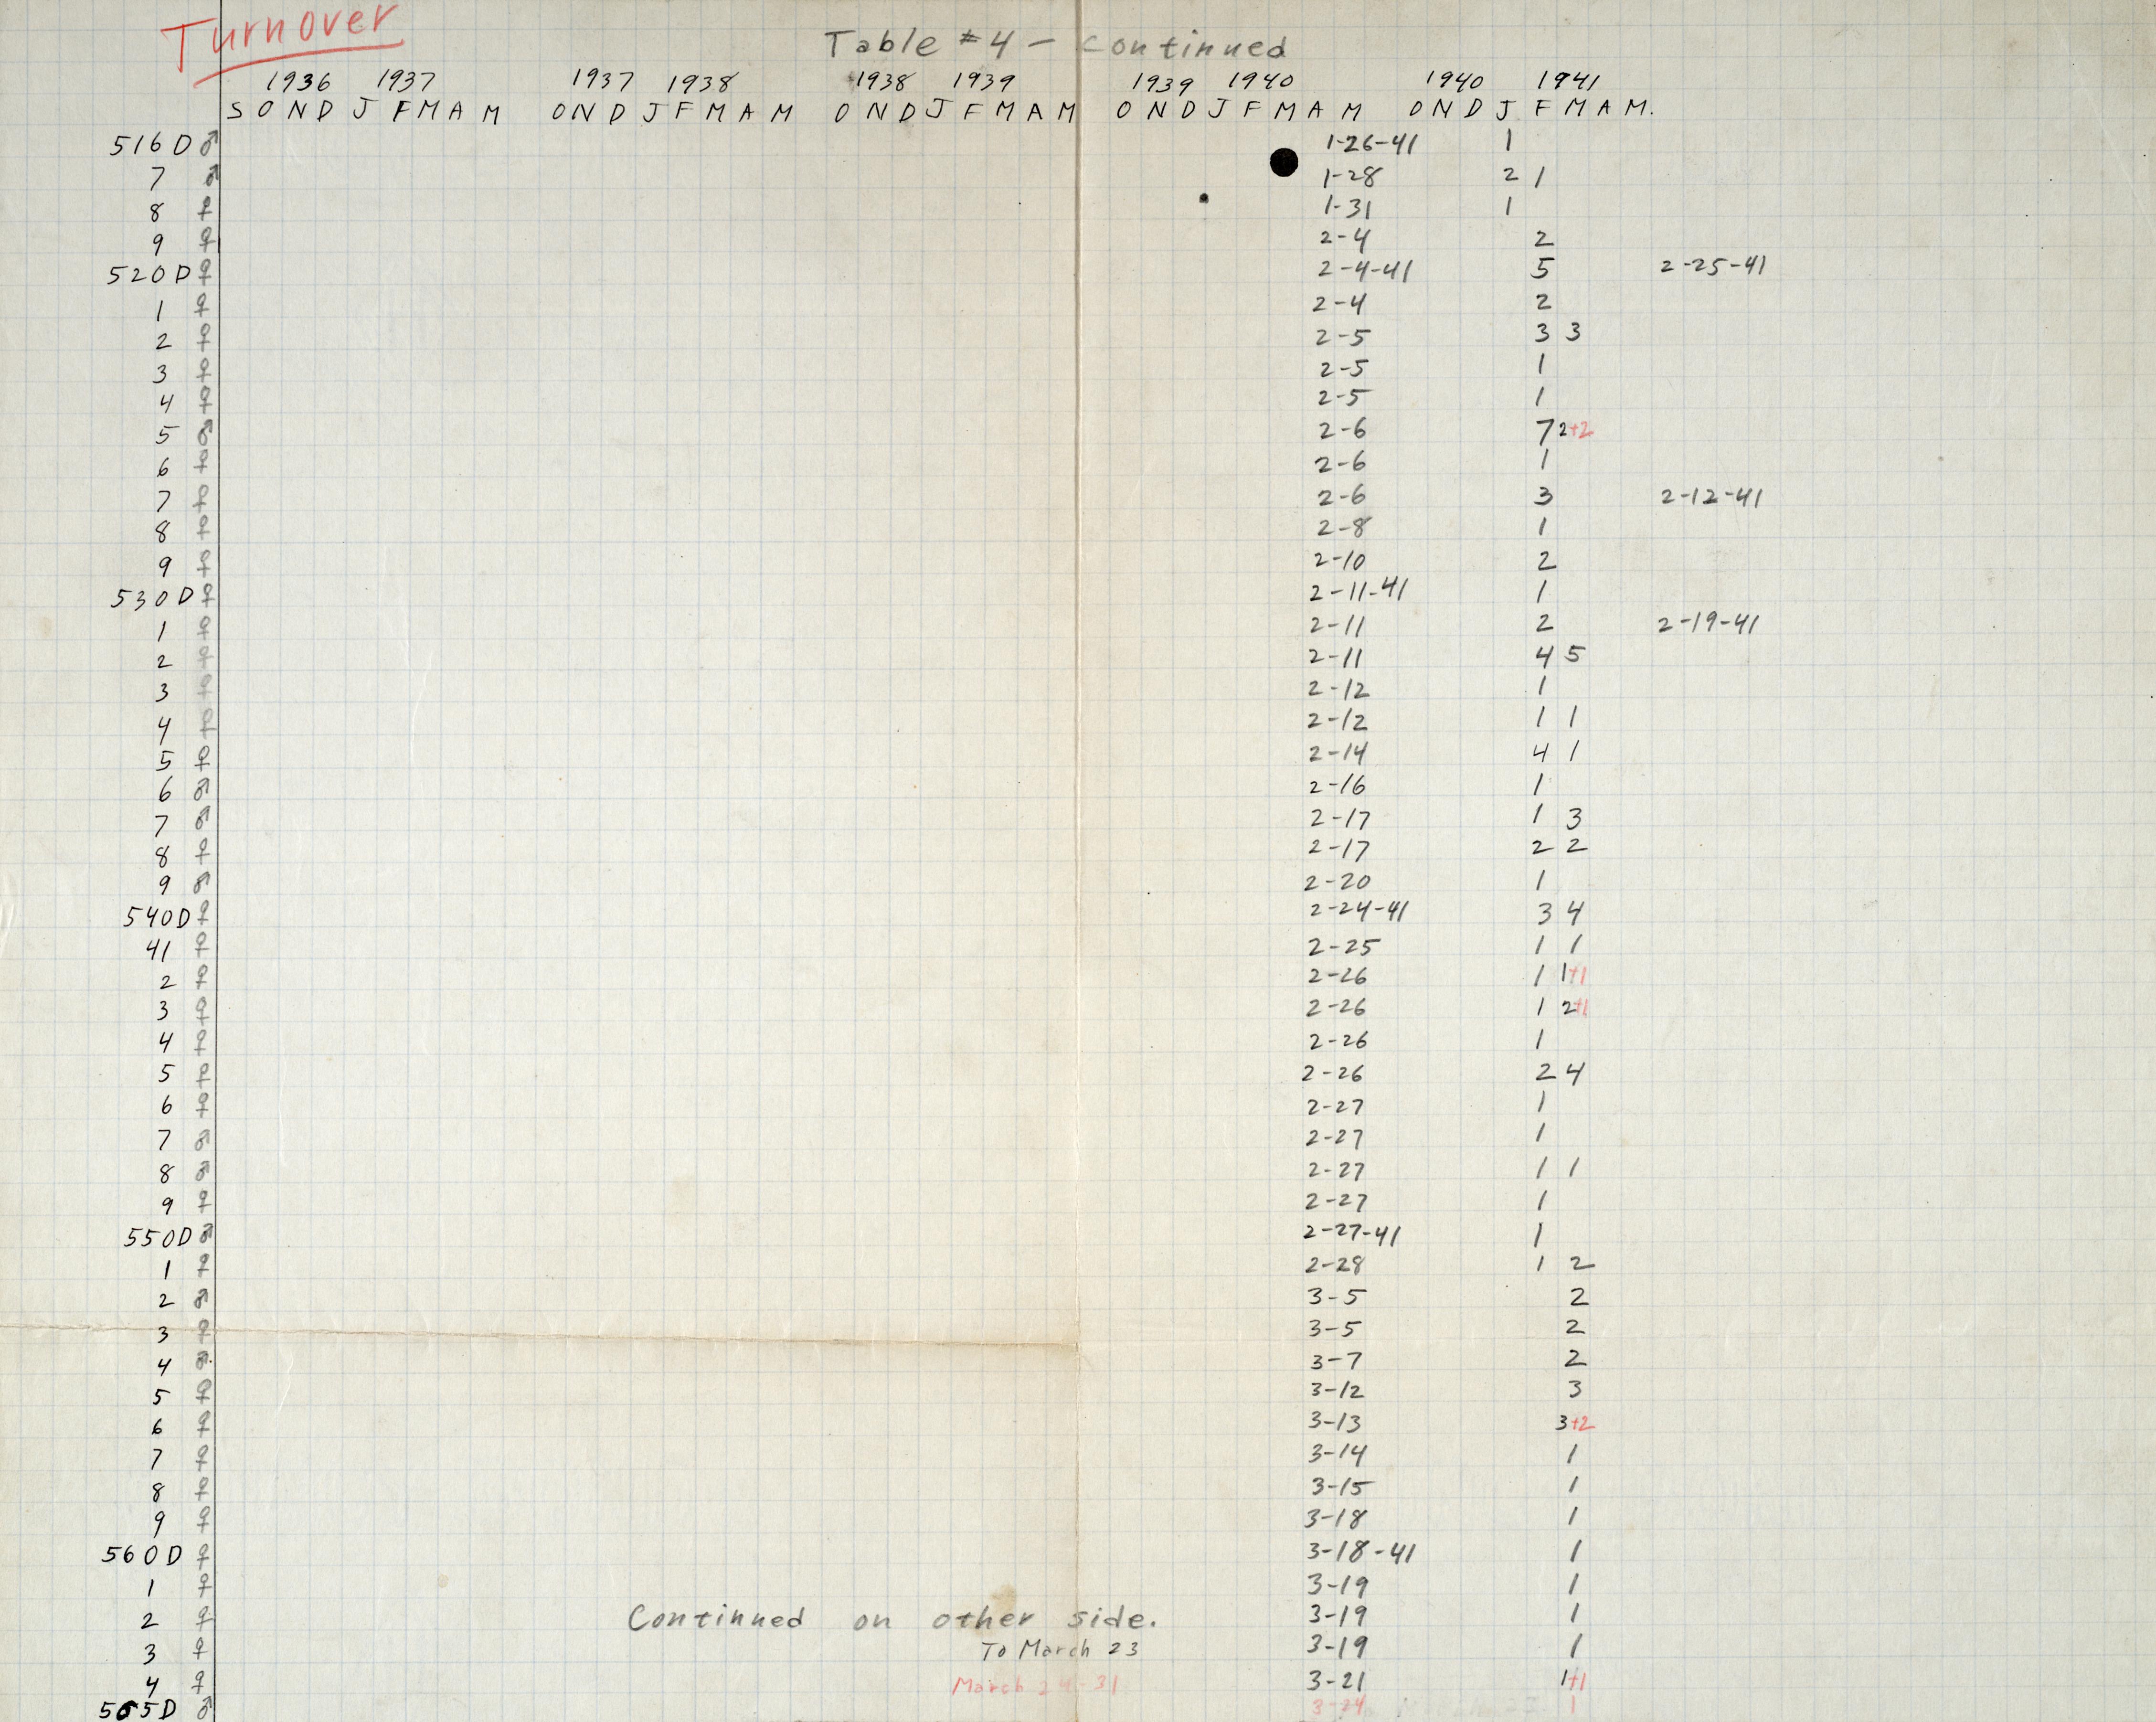 Turnover
Table #4 – continued
1936 1937 1937 1938 1938 1939 1939 1940 1940 1941
S O N D J F M A M O N D J F M A M O N D J F M A M O N D J F M A M O N D J F M A M.
516 D ♂ 1-26-41 1
7 ♂ 1-28 2 1
8 ♀ 1-31 1
9 ♀ 2-4 2
520 D ♀ 2-4-41 5 2-25-41
1 ♀ 2-4 2
2 ♀ 2-5 3 3
3 ♀ 2-5 1
4 ♀ 2-5 1
5 ♂ 2-6 7 2+2
6 ♀ 2-6 1
7 ♀ 2-6 3 2-12-41
8 ♀ 2-8 1
9 ♀ 2-10 2
530 D ♀ 2-11-41 1
1 ♀ 2-11 2 2-19-41
2 ♀ 2-11 4 5
3 ♀ 2-12 1
4 ♀ 2-12 1 1
5 ♀ 2-14 4 1
6 ♂ 2-16 1
7 ♂ 2-17 1 3
8 ♀ 2-17 2 2
9 ♂ 2-20 1
540D ♀ 2-24-41 3 4
41 ♀ 2-25 1 1
2 ♀ 2-26 1 1+1
3 ♀ 2-26 1 2+1
4 ♀ 2-26 1
5 ♀ 2-26 2 4
6 ♀ 2-27 1
7 ♂ 2-27 1
8 ♂ 2-27 1 1
9 ♀ 2-27 1
550D ♂ 2-27-41 1
1 ♀ 2-28 1 2
2 ♂ 3-5 2
3 ♀ 3-5 2
4 ♂ 3-7 2
5 ♀ 3-12 3
6 ♀ 3-13 3+2
7 ♀ 3-14 1
8 ♀ 3-15 1
9 ♀ 3-18 1
560 D ♀ 3-18-41 1
1 ♀ 3-19 1
2 ♀ Continued on other side. 3-19 1
3 ♀ To March 23 3-19 1
4 ♀ March 24-31 3-21 1+1
565D ♂ 3-24 1